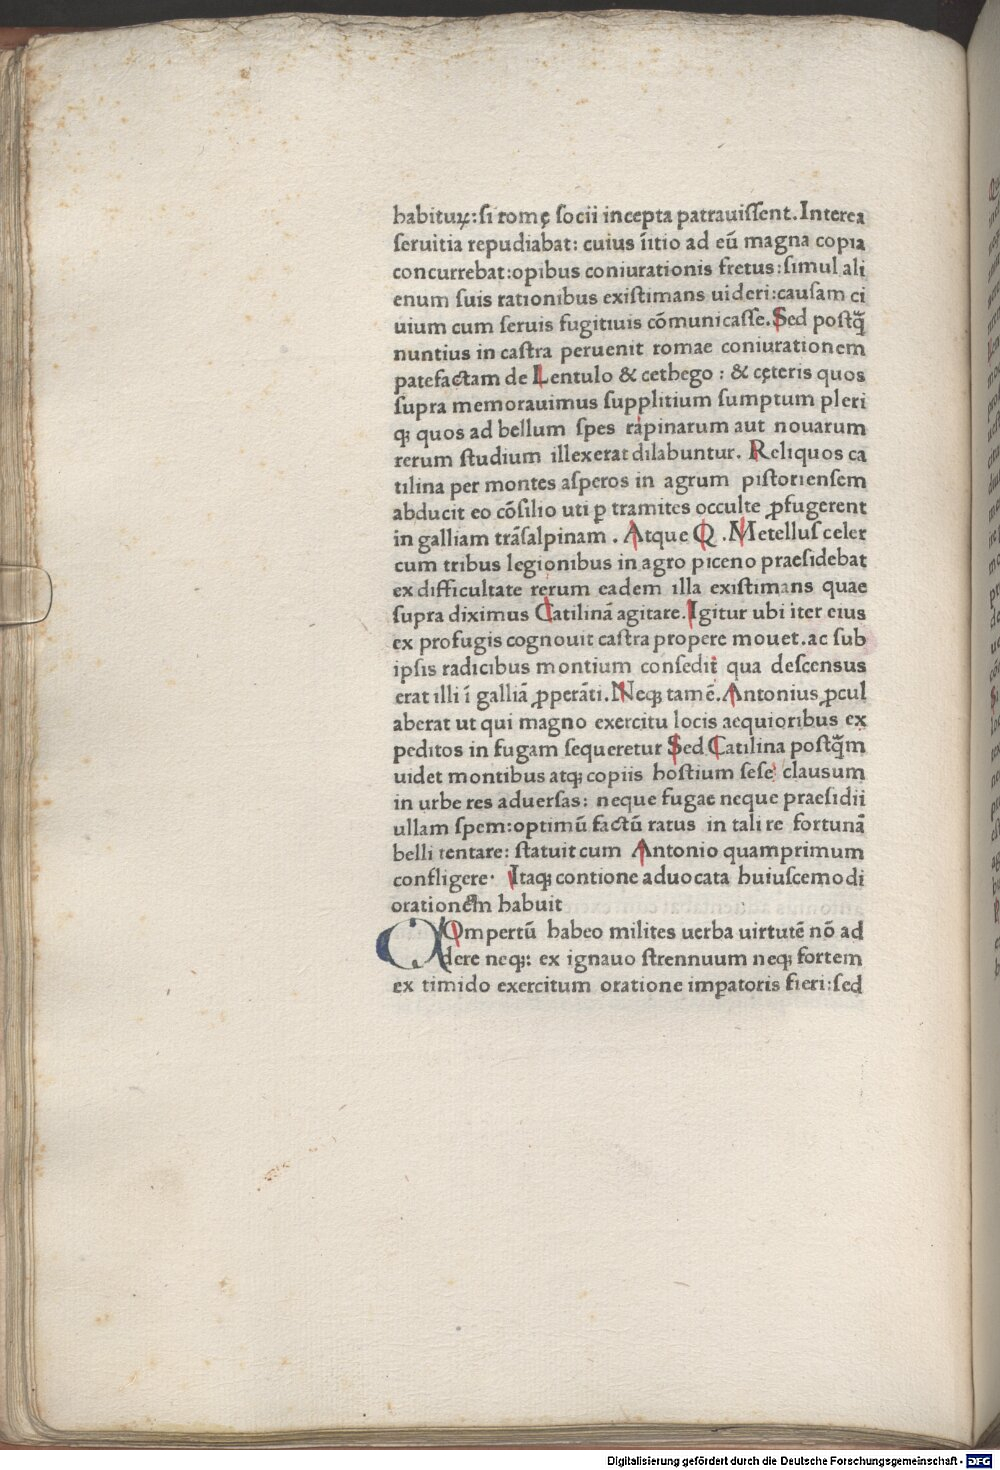 habituꝝ:ſi romę ſocii incepta patrauiſſent.Interea
ſeruitia repudiabat: cuius ĩitio ad eũ magna copia
concurrebat:opibus coniurationis fretus:ſimul ali
enum ſuis rationibus exiſtimans uideri:cauſam ci
uium cum ſeruis fugitiuis cõmunicaſſe.Sed poſtq̃
nuntius in caſtra peruenit romae coniurationem
patefactam de Lentulo & cethego : & cęteris quos
ſupra memorauimus ſupplitium ſumptum pleri
qꝫ quos ad bellum ſpes rapinarum aut nouarum
rerum ſtudium illexerat dilabuntur. Reliquos ca
tilina per montes aſperos in agrum piſtorienſem
abducit eo cõſilio uti ꝑ tramites occulte ꝓfugerent
in galliam trãſalpinam . Atque Q .Metelluſ celer
cum tribus legionibus in agro piceno praeſidebat
ex difficultate rerum eadem illa exiſtimans quae
ſupra diximus Catilinã agitare.Igitur ubi iter eius
ex profugis cognouit caſtra propere mouet.ac ſub
ipſis radicibus montium conſedit qua deſcensus
erat illi ĩ galliã ꝓperãti.Neqꝫ tamẽ.Antonius ꝓcul
aberat ut qui magno exercitu locis aequioribus ex
peditos in fugam ſequeretur Sed Catilina poſtq̃m
uidet montibus atqꝫ copiis hoſtium ſeſe clausum
in urbe res aduerſas: neque fugae neque praeſidii
ullam ſpem:optimũ factũ ratus in tali re fortunã
belli tentare: ſtatuit cum Antonio quamprimum
confligere· Itaqꝫ contione aduocata huiuſcemodi
orationem habuit
COmpertũ habeo milites uerba uirtutẽ nõ ad
dere neqꝫ: ex ignauo ſtrennuum neqꝫ fortem
ex timido exercitum oratione imꝑatoris fieri:ſed
Digitalisierung gefördert durch die Deutsche Forschungsgemeinschaft - DFG